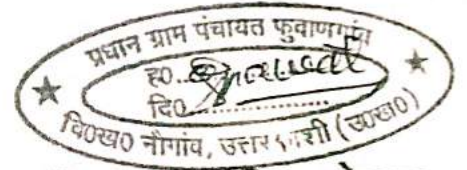 प्रधान ग्राम पंचायत फुवाणगांव
ह०..
दि०..............
वि०ख० नौगांव, उत्तरकाशी (उ०ख०)